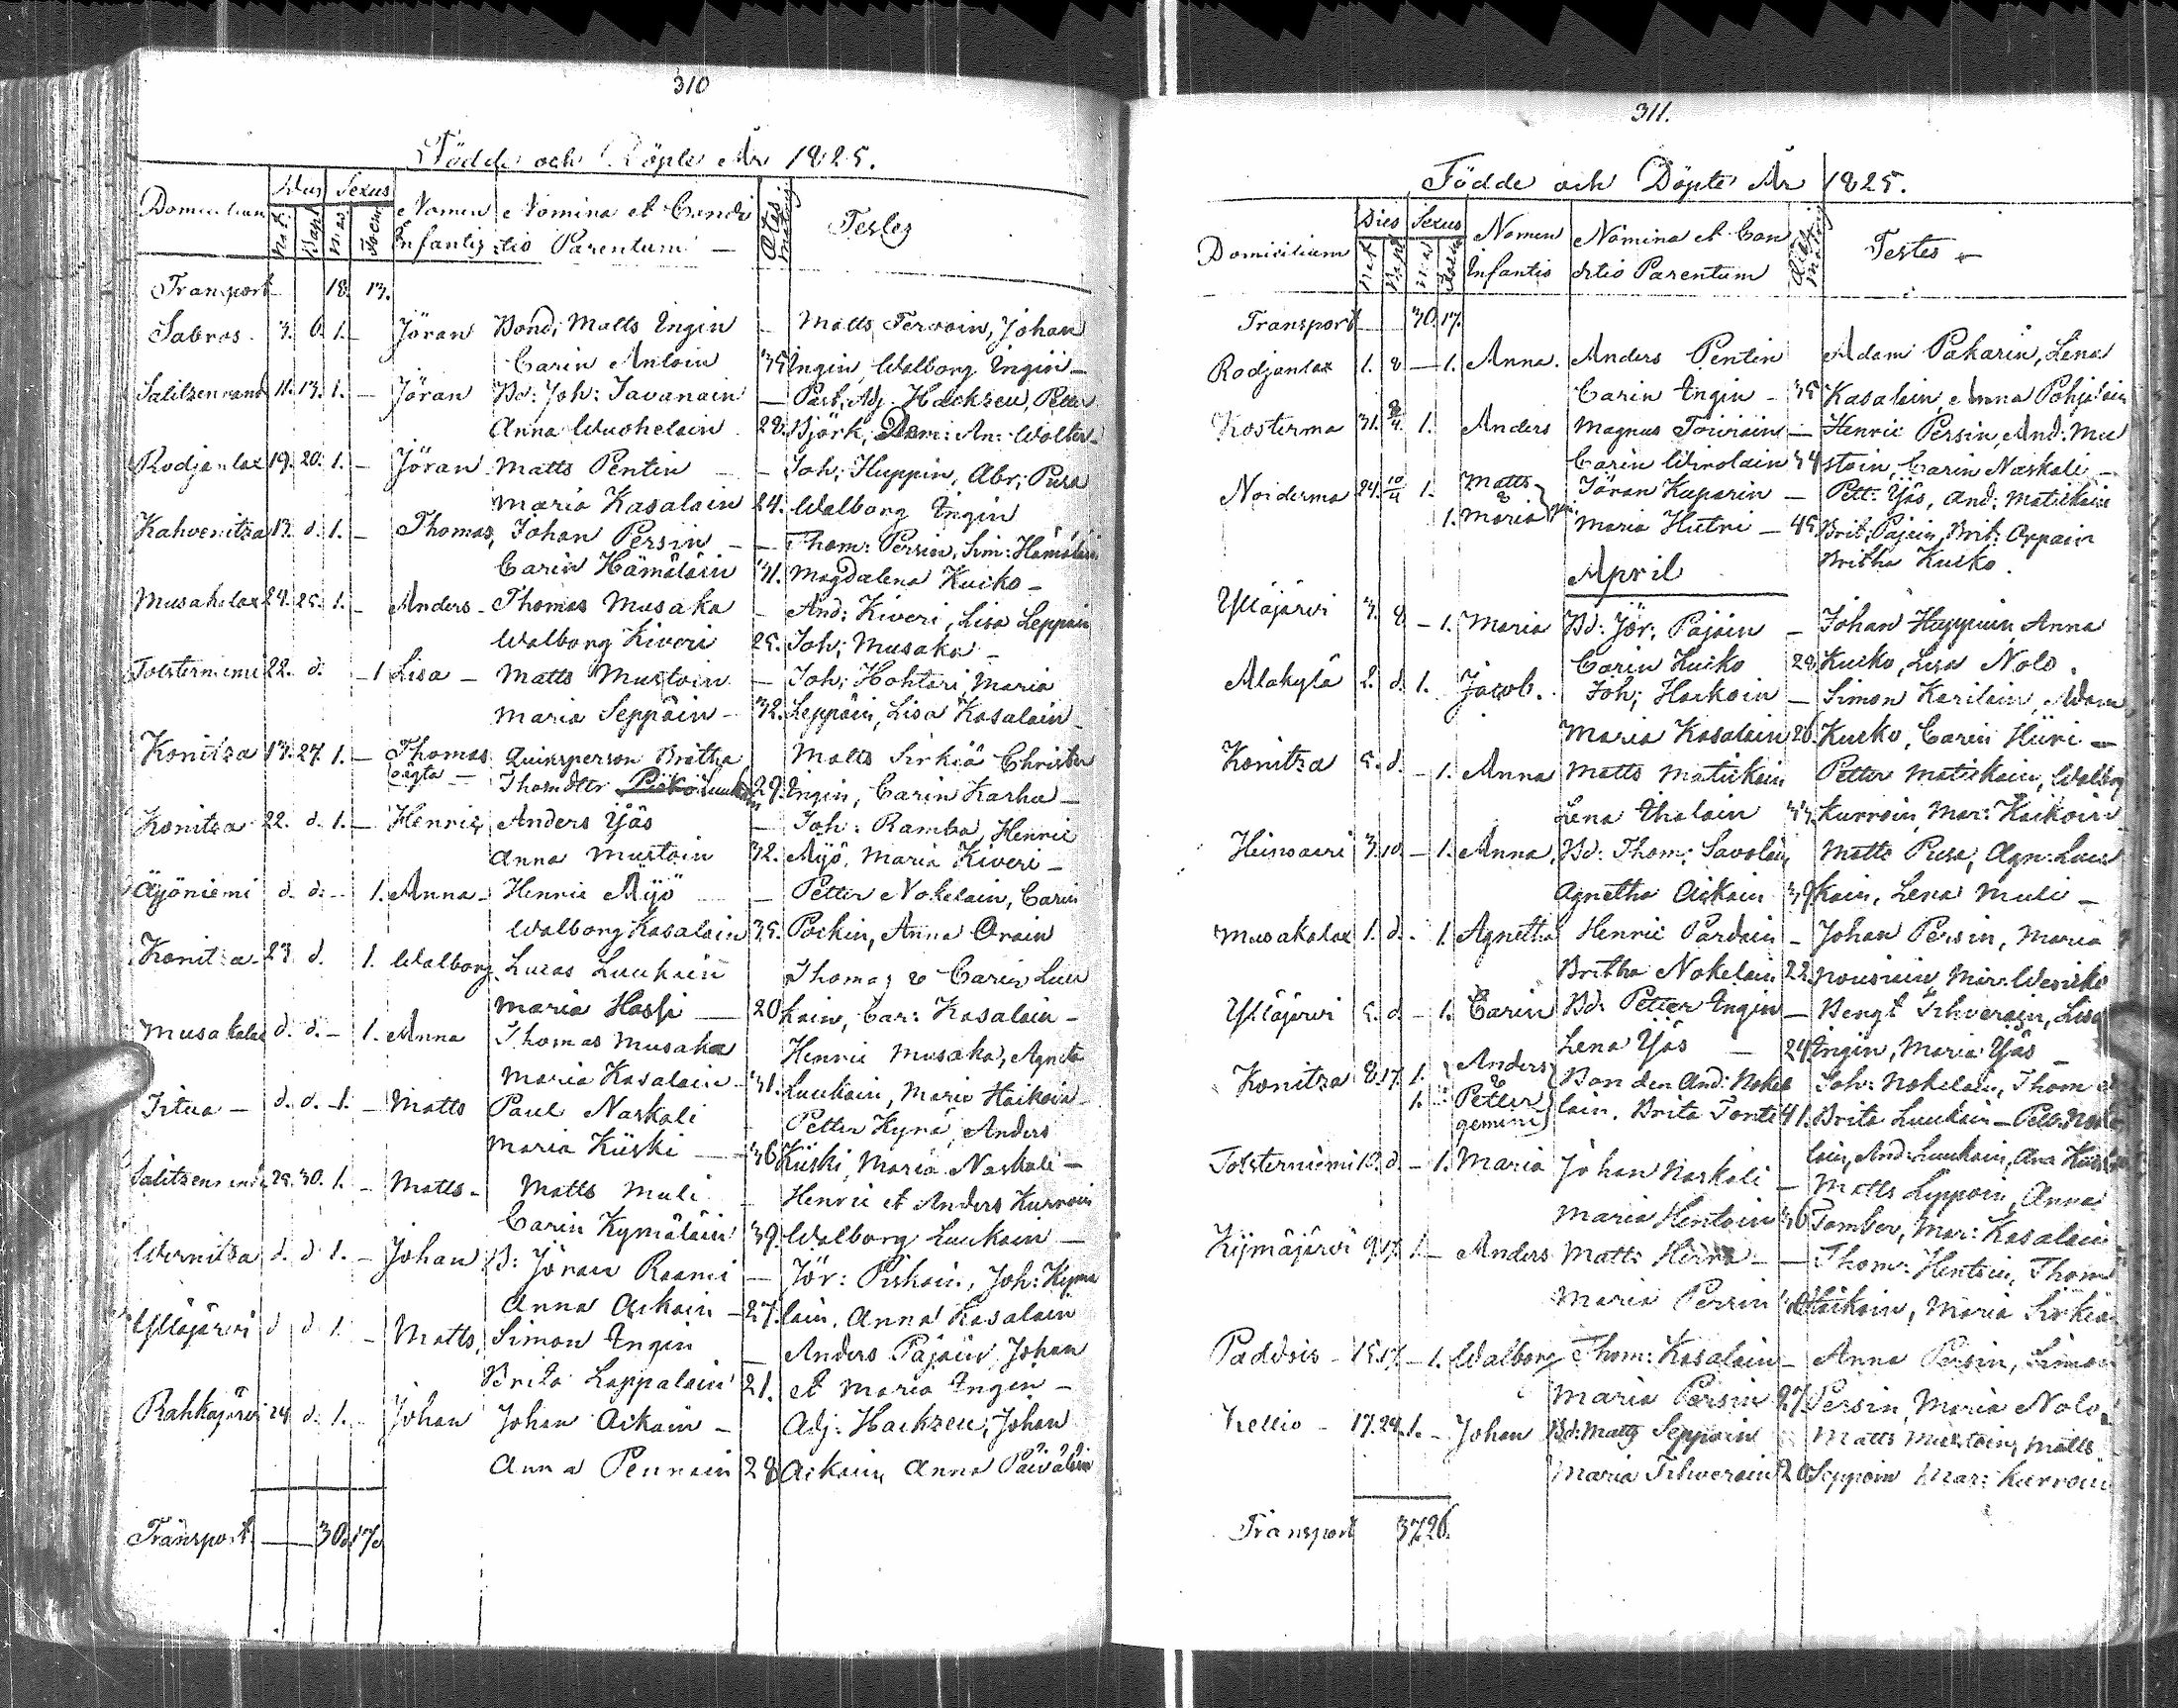 310
Födde och Döpte År 1825.
Domicilium Dies Sexus Nomen Nomina et Condi Ætas Testes
Nat. Bapt. Mas Foem Infantis tio Parentum Matris
Transport 18. 13.
Sabros. 3. 6. 1. – Jöran Bond; Matts Ingin – Matts Tervoin, Johan
Carin Antoin 35 Ingin, Walborg Ingin –
Salitzenrand 11. 13. 1. – Jöran Bd: Joh: Savanain – Past. Adj. Hackzeu, Petter
Anna Wuohelain 28. Björk, An: Wolter
Rodjanlax 19. 20. 1. – Jöran Matts Pentin – Joh; Huppin, Abr; Pusa
Maria Kasalain 24. Walborg Ingin
Kahvenitza 13. d. 1. – Thomas, Johan Persin – Thom: Persin, Sim: Hämäläin
Carin Hämäläin 31. Magdalena Kuiko –
Musakalax 24. 25. 1. – Anders – Thomas Musaka – And: Kiveri, Lisa Leppäin
Walborg Kiveri 25. Joh; Musaka –
Tolsterniemi 22. d. – 1 Lisa – Matts Mustoin – Joh; Hohteri, Maria
Maria Seppäin – 32. Leppäin, Lisa Kasalain –
Konitza 13. 27. 1. – Thomas Quinsperson Britha Matts Sirkiä Christer
oägta – Thomdttr 29. Ingin, Carin Karhu –
Konitza 22. d. 1. – Henric Anders Yjäs – Joh: Ramba, Henric
Anna Mustoin 32. Äyjö, Maria Kiveri –
Äyjöniemi d. d. – 1. Anna – Henric Äyjö – Petter Nokelain, Carin
Walborg Kasalain 35. Pockin, Anna Orain
Konitza 23. d. 1. Walborg. Lucas Luukain Thomas & Carin Luu
Maria Hassi – 20 kain, Car: Kasalain –
Musakalax d. d. – 1. Anna Thomas Musaka Henric Musaka, Agneta
Maria Kasalain – 31. Luukain, Maria Haikoin –
Titua – d. d. 1. – Matts Paul Naskali – Petter Kynä, Anders
Maria Kiiski – 36 Kiiski, Maria Naskali –
29. 30. 1. – Matts – Matts Muli – Henric et Anders Kurvoin
Carin Kymäläin 39. Walborg Luukain –
Wernitza d. d. 1. – Johan B: Jöran Raami – Jör: Piskoin, Joh: Kymä
Anna Aikain – 27. läin, Anna Kasalain
Ylläjärvi d d 1. – Matts, Simon Ingin – Anders Pajäin, Johan
Brita Lappalain 21. et Maria Ingin –
Rahkajärvi 24 d. 1. – Johan Johan Aikain – Adj. Hackzeu, Johan
Anna Pennain 28 Aikain, Anna Päiväläin
Transport. 30. 17.
311.
Födde och Döpte År 1825.
Domicilium Dies Sexus Nomen Nomina et Con Ætas Testes –
Nat Bapt Mas Foem Infantis ditio Parentum Matris
Transport 30. 17.
Rodjanlax 1. 8 – 1. Anna. Anders Pentin Adam Pakarin, Lena
Carin Ingin – 35 Kasalain, Anna Pohjalain
Kosterma 31. 2/4. 1. Anders Magnus Toiviain – Henric Persin, And: Mu
Carin Wirolain 34 stoin, Carin Naskali –
Noiderma 24. 10/4 1. Matts & Jöran Kuparin – Pett: Yjäs, And: Matickain
1. Maria Maria Hutri – 45 Brit; Pajäin, Brit: Appain
Britha Kuiko.
April
Ylläjärvi 3. 8 – 1. Maria Bd: Jör; Pajäin – Johan Huppuin, Anna
Carin Kuiko 28 Kuiko, Lisa Nolo.
Alakylä 2. d. 1. Jacob. Joh; Haikoin – Simon Karilain, Adam
Maria Kasalain 26. Kuiko, Carin Hüri –
Konitza 5. d. – 1. Anna Matts Matickain Petter Matickain, Walborg
Lena Ihalain 33. Kurvoin, Mar: Haikoin
Heinsaari 3. 10 – 1. Anna, Bd: Thom; Savolain Matts Pusa, Agn: Luu
Agnetha Aikain 39 kain, Lena Muli –
Musakalax 1. d. – 1. Agnetha Henric Pardain – Johan Persin, Maria
Britha Nokelain 22. Nousiain, Mar:
Ylläjärvi 5. d – 1. Carin Bd: Petter Ingin – Bengt Tihverain, Lisa
Lena Yjäs – 24 Ingin, Maria Yjäs –
Konitza 8. 17. 1. Anders & Bonden And: Noke Joh: Nokelain, Thom et
1. Petter gemini lain. Brita Tonte 41. Brita Luukain – Pett: Noke
lain, And: Luukain,
Tolsterniemi 13. d – 1. Maria Johan Naskali – Matts Lyppoin, Anna
Maria Hentoin 36 Tomber, Mar: Kasalain
Kijmäjärvi 9. 17. 1. – Anders Matts Hirva – Thom: Hentoin, Thom
Maria Persin Haikoin, Maria Sirkiä
Paddois – 15. 17. – 1. Walborg Thom: Kasalain – Anna Persin, Simon
Maria Persin 27. Persin, Maria Nolo.
Kellio – 17. 24. 1. – Johan Bd: Matts Seppäin Matts Mustoin, Matts
Maria Tihverain 20 Seppäin Mar: Kurvoin
Transport 37. 26.